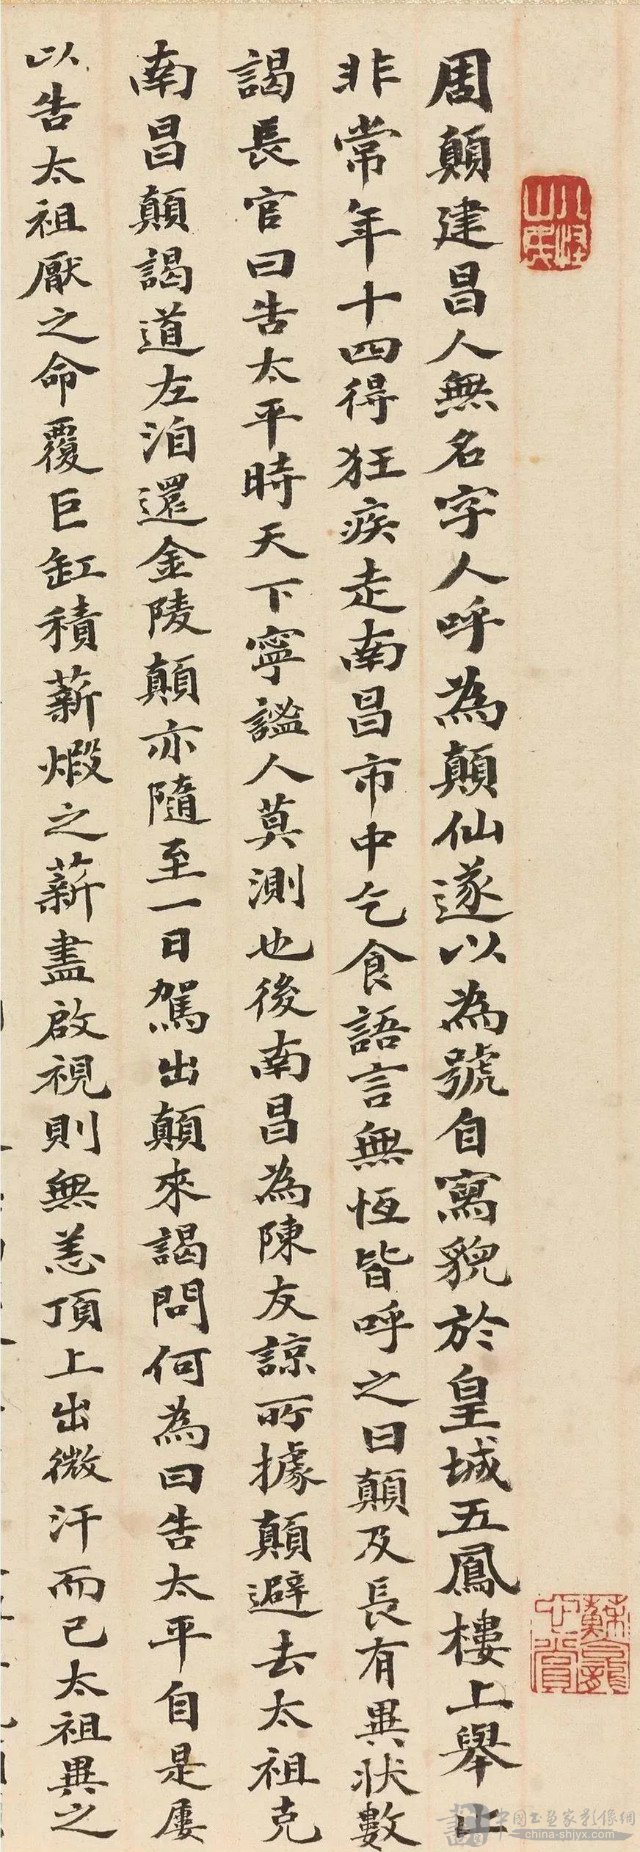 周顛建昌人無名字人呼為顛仙遂以為號自寫貌於皇城五鳳樓上舉止
非常年十四得狂疾走南昌市中乞食語言無恆皆呼之曰顛及長有異狀數
謁長官曰告太平時天下寧謐人莫測也後南昌為陳友諒所據顛避去太祖克
南昌顛謁道左洎還金陵顛亦隨至一日駕出顛來謁問何為曰告太平自是屢
以告太祖厭之命覆巨缸積薪煅之薪盡啟視則無恙頂上出微汗而已太祖異之
中国书画家影像網
china-shjyx.com